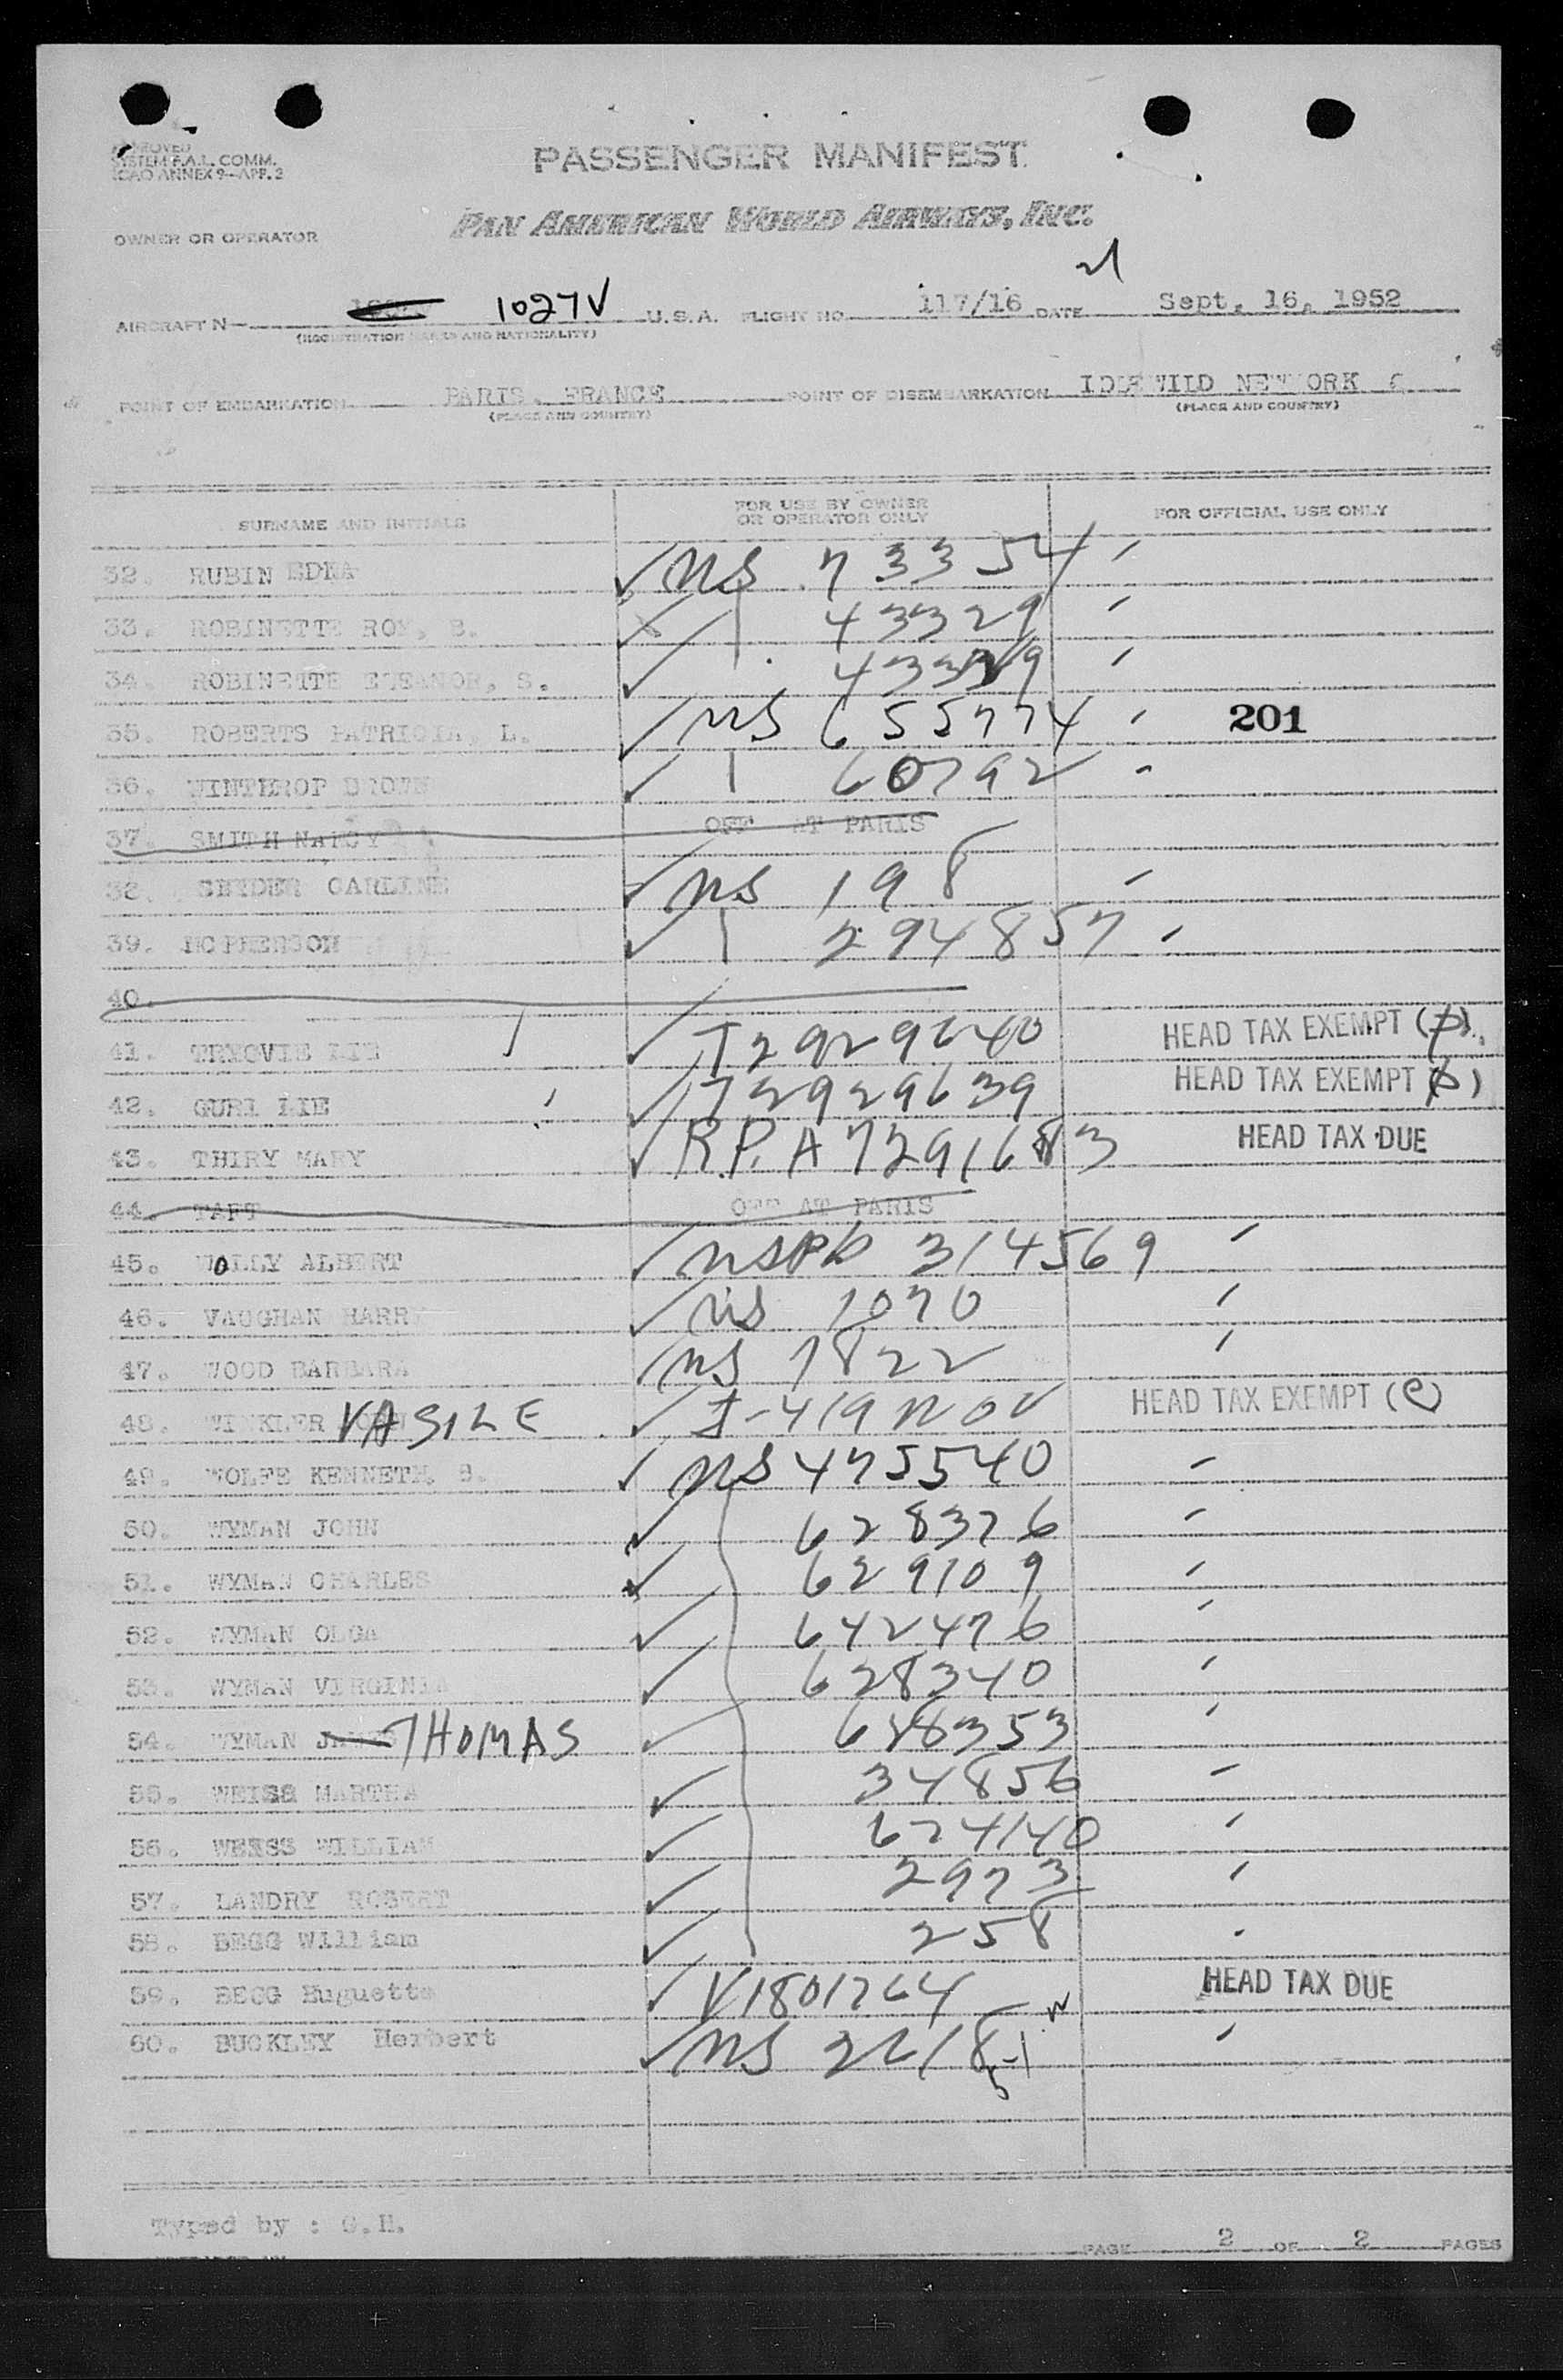 APPROVED
SYSTEM F.A.L. COMM.
ICAO ANNEX 9—APP. 2
PASSENGER MANIFEST
PAN AMERICAN WORLD AIRWAYS, INC.
OWNER OR OPERATOR
21
AIRCRAFT N— 1027V U.S.A. FLIGHT NO. 117/16 DATE Sept, 16, 1952
(REGISTRATION MARKS AND NATIONALITY)
POINT OF EMBARKATION PARIS, FRANCE POINT OF DISEMBARKATION IDLEWILD NEW YORK
(PLACE AND COUNTRY) (PLACE AND COUNTRY)
SURNAME AND INITIALS FOR USE BY OWNER OR OPERATOR ONLY FOR OFFICIAL USE ONLY
32. RUBIN EDNA ✓ NS 73354
33. ROBINETTE ROY, B. ✓ 43329
34. ROBINETTE ELEANOR, S. ✓ 43329
35. ROBERTS PATRICIA, L. ✓ NS 655774 201
36. WINTHROP BROWN ✓ 60792
37. SMITH NANCY OFF AT PARIS
38. SNYDER CARLINE ✓ NS 198
39. MCPHERSON ✓ 294857
40.
41. TRYGVIE LIE ✓ T2929640 HEAD TAX EXEMPT
42. GURI LIE ✓ T2929639 HEAD TAX EXEMPT
43. THIRY MARY ✓ R.P. A7291683 HEAD TAX DUE
44. TAFT OFF AT PARIS
45. WOLLY ALBERT ✓ 314569
46. VAUGHAN HARRY ✓ NS 1070
47. WOOD BARBARA ✓ NS 1822
48. WINKLER VASILE ✓ I-419 HEAD TAX EXEMPT (C)
49. WOLFE KENNETH, B. ✓ NS 475540
50. WYMAN JOHN ✓ 628376
51. WYMAN CHARLES ✓ 629109
52. WYMAN OLGA ✓ 642476
53. WYMAN VIRGINIA ✓ 628340
54. WYMAN JAMES THOMAS ✓ 628353
55. WEISS MARTHA ✓ 34856
56. WEISS WILLIAM ✓ 624140
57. LANDRY ROBERT ✓ 2973
58. BEGG William ✓ 258
59. BEGG Huguette ✓ V1801764 HEAD TAX DUE
60. BUCKLEY Herbert ✓ NS 2618
Typed by : G.H.
PAGE 2 OF 2 PAGES